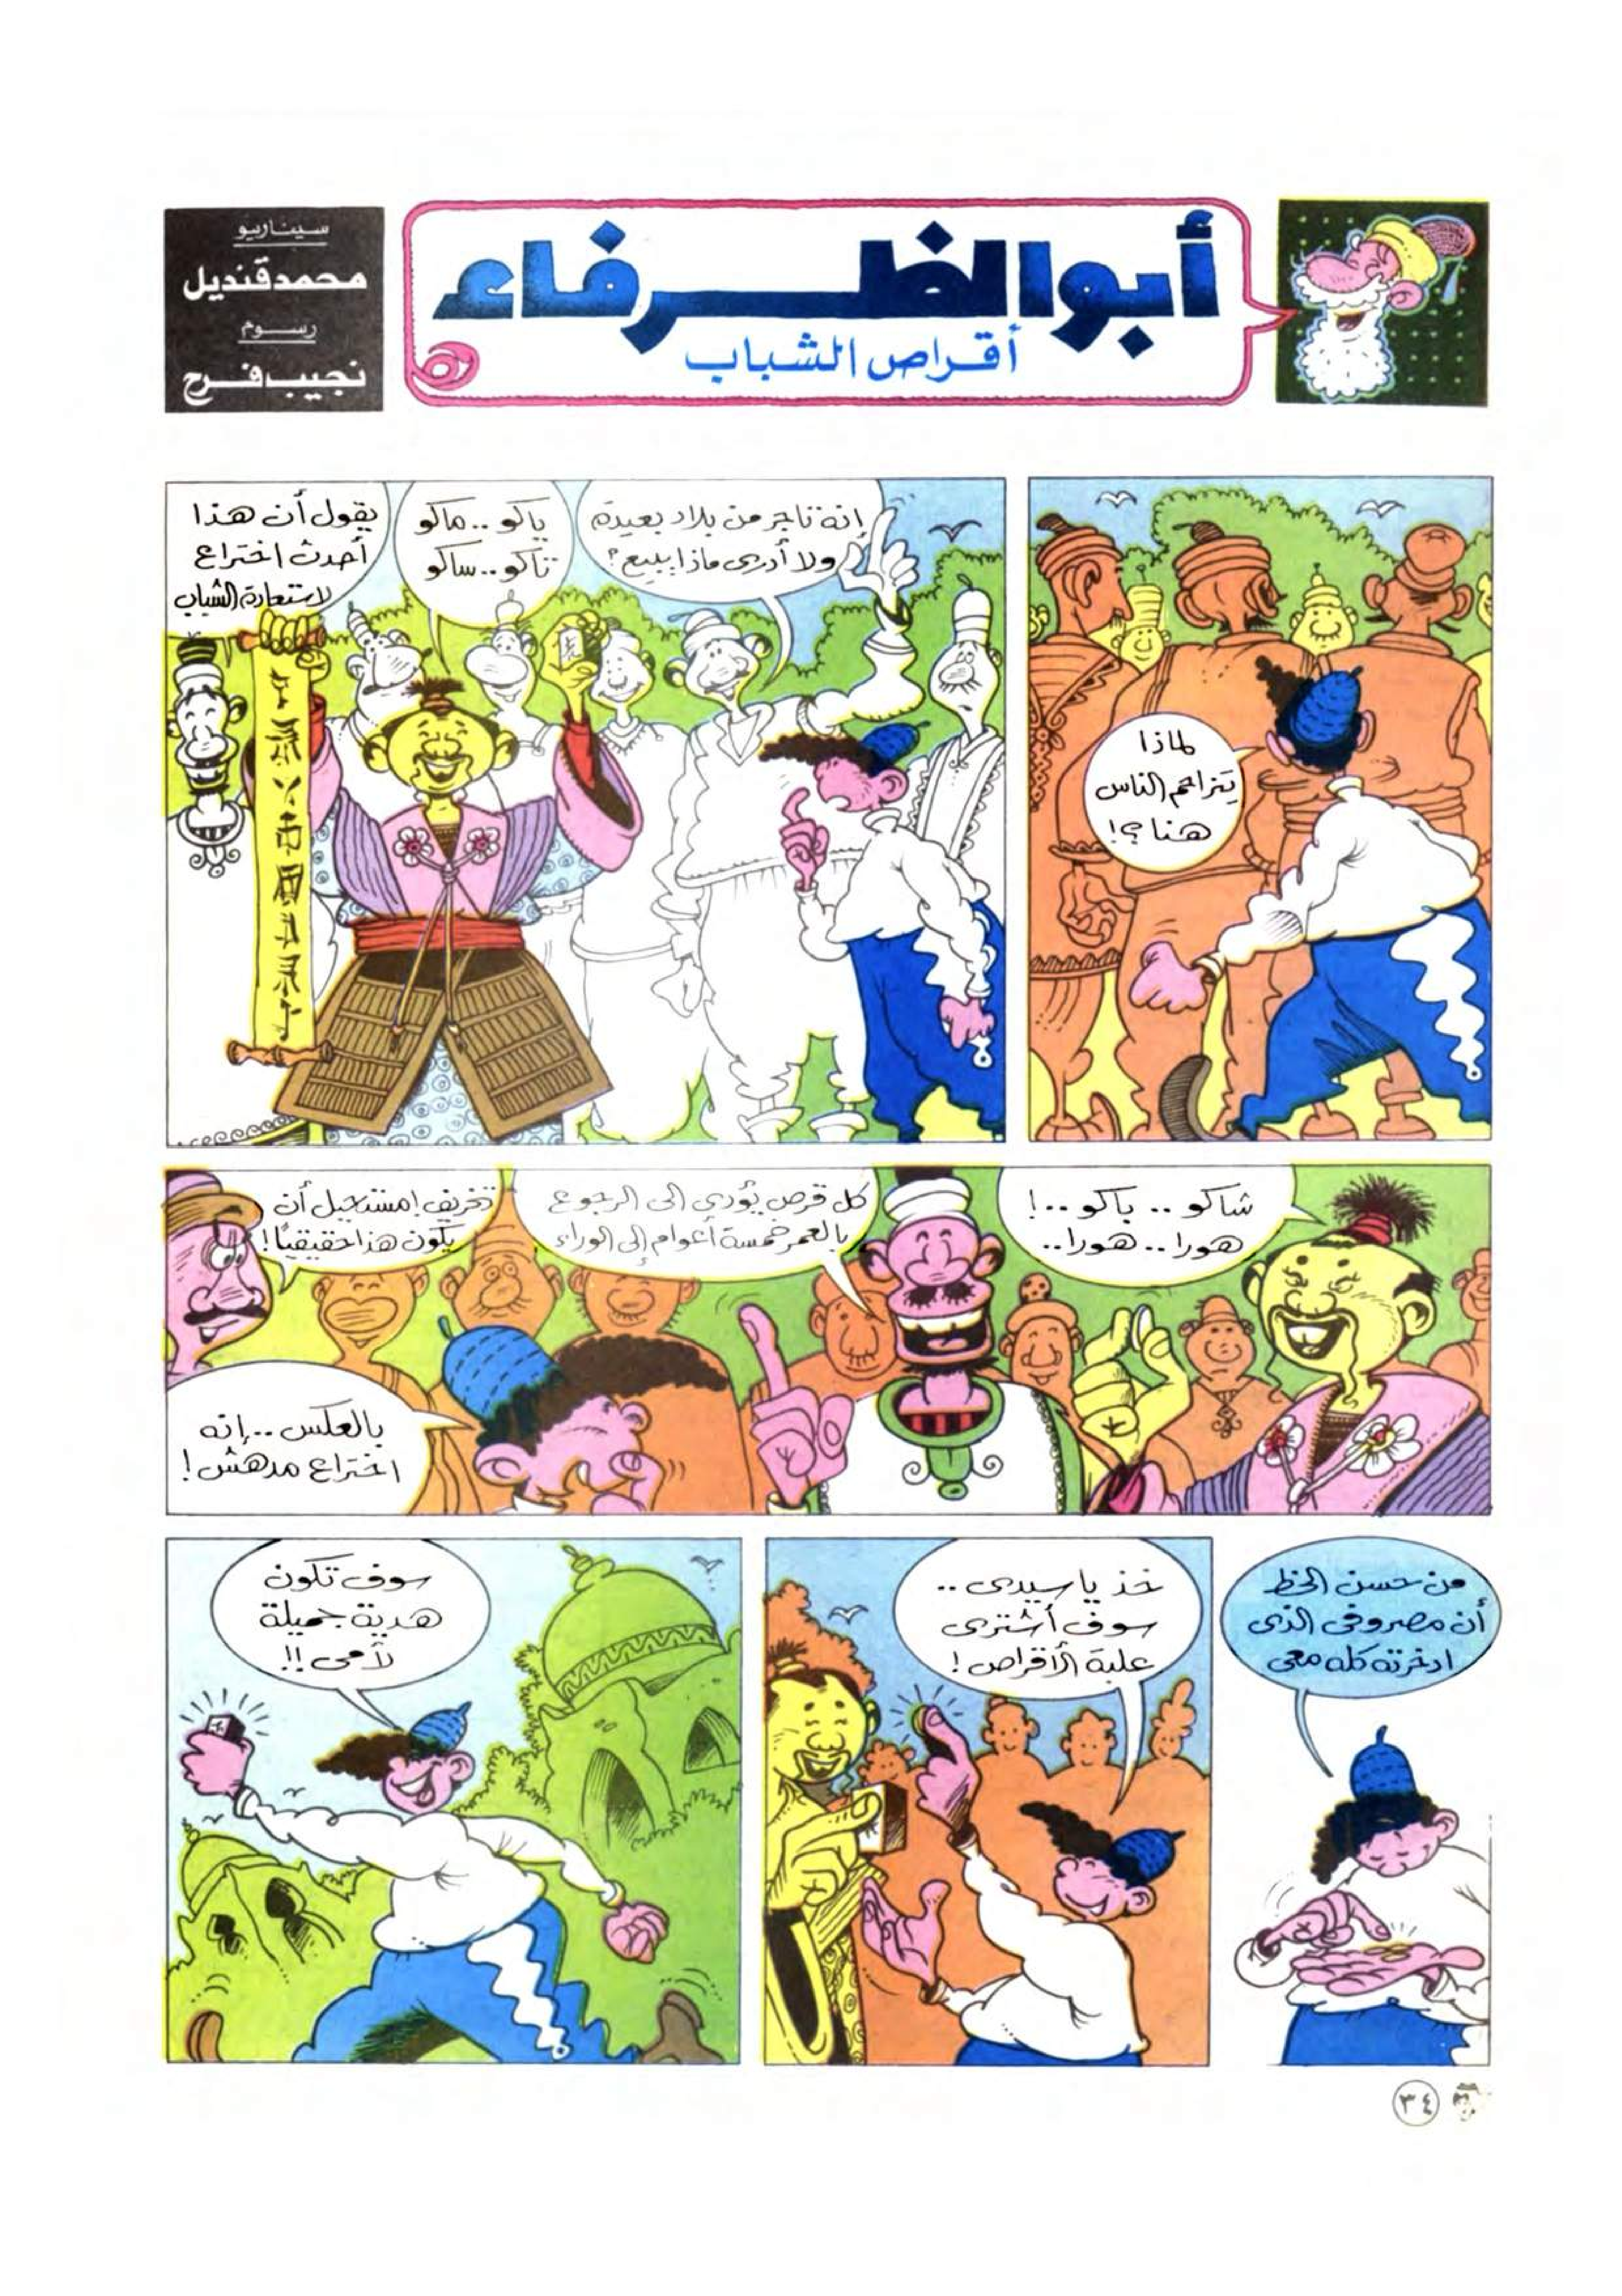 أبو الظرفاء
أقراص الشباب
سيناريو
محمد قنديل
رسوم
نجيب فرح
لماذا
يتزاحم الناس
هنا؟!
إنه تاجر من بلاد بعيدة
ولا أدرى ماذا يبيع؟
باكو .. ماكو
تاكو .. ساكو
يقول أن هذا
أحدث اختراع
لاستعادة الشباب
شاكو .. باكو ..!
هورا .. هورا ..
كل قرص يؤدى إلى الرجوع
بالعمر خمسة أعوام إلى الوراء
تخريف! مستحيل أن
يكون هذا حقيقيًا!
بالعكس .. إنه
اختراع مدهش!
من حسن الحظ
أن مصروفى الذى
ادخرته كله معى
خذ يا سيدى ..
سوف أشترى
علبة الأقراص!
سوف تكون
هدية جميلة
لأمى!!
٣٤